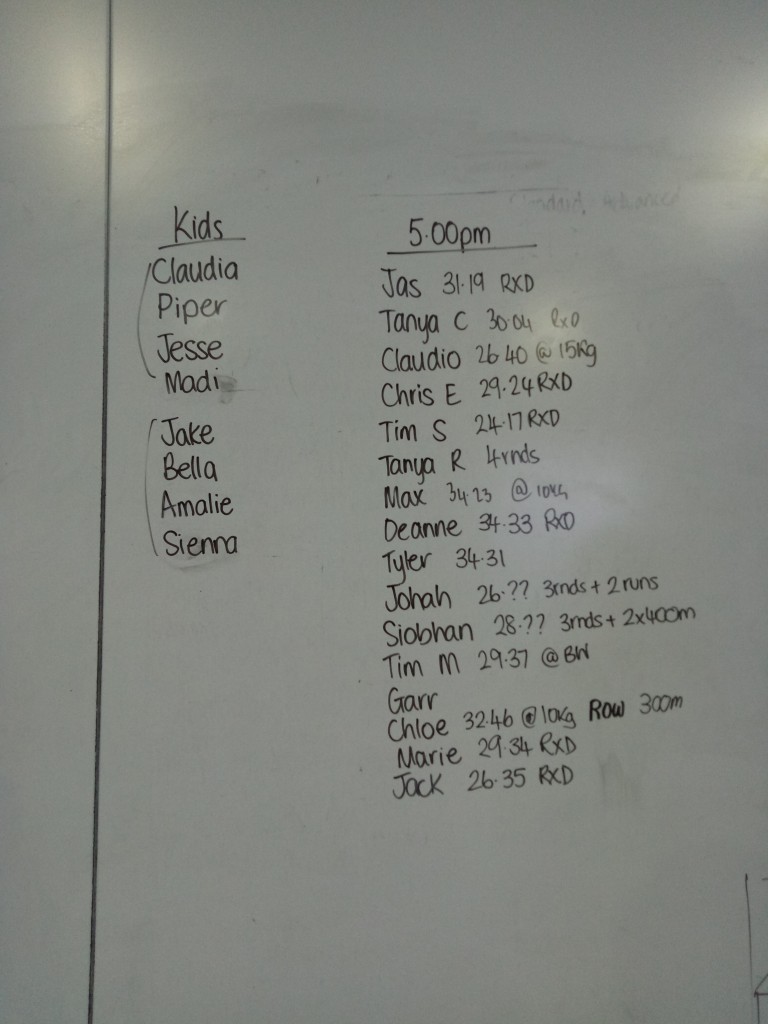 Kids
Claudia
Piper
Jesse
Madi
Jake
Bella
Amalie
Sienna
5.00pm
Jas 31.19 RXD
Tanya C 30.04 RXD
Claudio 26.40 @ 15kg
Chris E 29.24 RXD
Tim S 24.17 RXD
Tanya R 4rnds
Max 34.23 @ 10kg
Deanne 34.33 RXD
Tyler 34.31
Johah 26.?? 3rnds + 2 runs
Siobhan 28.?? 3rnds + 2x400m
Tim M 29.37 @ BW
Garr
Chloe 32.46 @ 10kg Row 300m
Marie 29.34 RXD
Jack 26.35 RXD